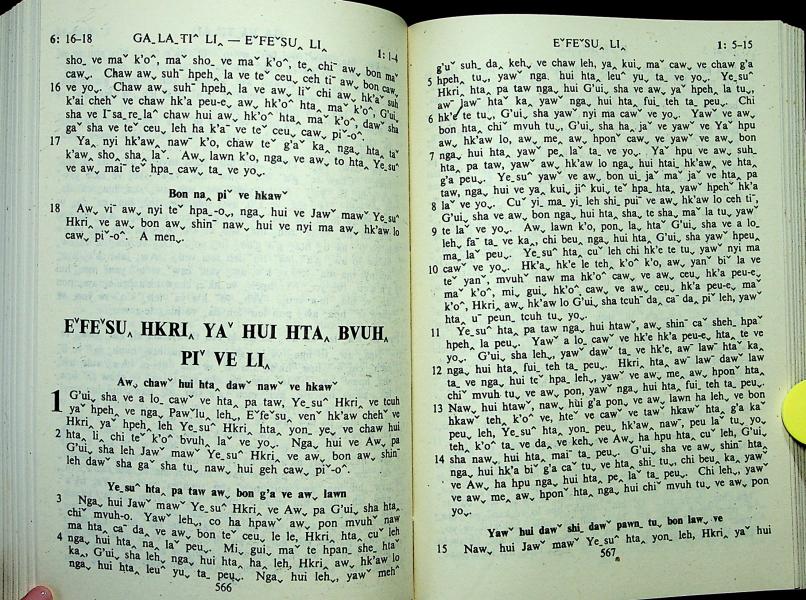 6: 16-18 GA˗LA˗TIˆ LI‸ — EˇFEˇSU‸ LI‸ 1: 1-4
sho˗ ve maˇ k'oˆ, maˇ sho˗ ve maˇ k'oˆ, te‸ chiˉ aw‸ bon maˇ
caw˯. Chaw aw‸ suhˉ hpeh‸ la ve teˇ ceu˯ ceh tiˉ aw‸ bon caw˯
16 ve yo˯. Chaw aw‸ suhˉ hpeh‸ la ve aw˯ liˇ chi aw‸ hk'aˇ suh
k'ai chehˇ ve chaw hk'a peu-e˯ aw‸ hk'oˆ hta‸ maˇ k'oˆ, G'ui˯
sha ve I˗sa˗re˗laˆ chaw hui aw‸ hk'oˆ hta‸ maˇ k'oˆ, dawˇ sha
gaˇ sha ve teˇ ceu˯ leh ha k'aˉ ve teˇ ceu˯ caw˯ piˇ-oˆ.
17 Ya‸ nyi hk'aw‸ nawˉ k'o, chaw te˯ g'aˇ ka‸ nga‸ hta‸ taˇ
k'aw‸ sho‸ sha‸ laˇ. Aw˯ lawn k'o, nga‸ ve aw‸ to hta‸ Ye˗suˆ
ve aw‸ maiˉ teˇ hpa‸ caw˯ ta‸ ve yo˯.
Bon na‸ piˇ ve hkawˇ
18 Aw‸ viˉ aw‸ nyi teˇ hpa˗-o˯, nga‸ hui ve Jawˇ mawˇ Ye˗suˆ
Hkri‸ ve aw‸ bon aw‸ shinˉ nawˇ hui ve nyi ma aw‸ hk'aw lo
caw˯ piˇ-oˆ. A men˯.
EˇFEˇSU‸ HKRI‸ YAˇ HUI HTA‸ BVUH‸
PIˇ VE LI‸
Aw‸ chawˇ hui hta‸ dawˇ nawˇ ve hkawˇ
1 G'ui˯ sha ve a lo‸ cawˇ ve hta‸ pa taw‸ Ye˗suˆ Hkri‸ ve tcuh
yaˇ hpeh‸ ve nga‸ Pawˇlu‸ leh‸, EˇfeˇsU‸ venˇ hk'aw chehˇ ve
Hkri‸ yaˇ hpeh‸ leh Ye˗suˆ Hkri‸ hta‸ yon˗ ye‸ ve chaw hui
2 hta‸ li‸ chi teˇ k'oˆ bvuh‸ la ve yo˯. Nga‸ hui ve Aw‸ pa
G'ui˯ sha leh Jawˇ mawˇ Ye˗suˆ Hkri‸ ve aw‸ bon aw‸ shinˉ
leh daw sha gaˇ sha tu˯ naw˯ hui geh caw˯ piˇ-oˆ.
Ye˗suˆ hta‸ pa taw aw‸ bon g'a ve aw˯ lawn
3 Nga‸ hui Jawˇ mawˇ Ye˗suˆ Hkri‸ ve Aw‸ pa G'ui˯ sha hta‸
chiˉ mvuh-o. Yawˇ leh˯, co ha hpawˇ aw‸ pon mvuhˇ naw
ma hta‸ caˉ da‸ ve aw‸ bon teˇ ceu˯ le le, Hkri‸ hta‸ cuˇ leh
4 nga‸ hui hta‸ na‸ laˇ peu˯. Mi˯ gui˯ maˇ te hpan˗ she˗ htaˇ
ka‸, G'ui˯ sha leh˯ nga‸ hui hta‸ ha‸ leh, Hkri‸ aw‸ hk'aw lo
nga‸ hui hta‸ leuˆ yu‸ ta˗ peu˯. Nga‸ hui leh˯, yawˇ mehˆ
566
EˇFEˇSU‸ LI‸ 1: 5-15
g'uˇ suh˗ da‸ keh˯ ve chaw leh, ya‸ kui˯ maˇ caw˯ ve chaw g'a
5 hpeh‸ tu˯, yawˇ nga‸ hui hta‸ leuˆ yu‸ ta˗ ve yo˯. Ye˗suˆ
Hkri‸ hta‸ pa taw nga‸ hui hta‸ G'ui˯ sha ve aw‸ yaˇ hpeh‸ la tu˯,
aw˯ jawˇ htaˇ ka‸ yawˇ nga‸ hui hta‸ fui‸ teh ta‸ peu˯. Chi
6 hk'e te tu˯, G'ui˯ sha yawˇ nyi ma cawˇ ve yo˯. Yawˇ ve aw‸
bon hta‸ chiˉ mvuh tu˯, G'ui˯ sha ha‸ jaˇ ve yawˇ ve Yaˇ hpu
aw‸ hk'aw lo, aw˯ me‸ aw‸ hponˇ caw‸ ve yawˇ ve aw‸ bon
7 nga‸ hui hta‸ yawˇ pe‸ laˇ ta‸ ve yo˯. Yaˇ hpu ve aw‸ suh˗
hta‸ pa taw, yawˇ aw‸ hk'aw lo nga‸ hui htai‸ hk'aw‸ ve hta‸
g'a peu˯. Ye˗suˆ yawˇ ve aw‸ bon ui˗jaˇ maˇ jaˇ ve hta‸ pa
taw, nga‸ hui ve ya‸ kui˯ jiˇ kui˯ teˇ hpa‸ hta‸ yawˇ hpehˇ hk'a
8 la ve yo˯. Cuˇ yi˗ ma˗ yi˗ leh shi˗ puiˉ ve aw‸ hk'aw lo ceh tiˉ,
G'ui˯ sha ve aw‸ bon nga‸ hui hta‸ sha‸ te sha‸ maˇ la tu˯ yawˇ
9 te laˇ ve yo˯. Aw˯ lawn k'o, pon˯ la‸ htaˇ G'ui˯ sha ve a lo˗
leh‸ faˉ ta˗ ve ka‸, chi beu˯ nga‸ hui hta‸ G'ui˯ sha yawˇ hpeu‸
ma‸ laˇ peu˯. Ye˗suˆ hta‸ cuˇ leh chi hk'e te tu˯ yawˇ nyi ma
10 cawˇ ve yo˯. Hk'a‸ hk'e le teh‸ k'oˆ k'o, aw‸ yanˇ biˇ la ve
teˇ yanˇ, mvuhˇ naw ma hk'oˆ caw˯ ve aw‸ ceu˯ hk'a peu-e˯
maˇ k'oˆ, mi˯ gui˯ hk'oˆ caw˯ ve aw‸ ceu˯ hk'a peu-e˯ maˇ
k'oˆ, Hkri‸ aw‸ hk'aw lo G'ui˯ sha tcuhˉ da‸ caˉ da‸ piˇ leh, yawˇ
hta‸ uˉ peun˗ tcuh tu˯ yo˯.
11 Ye˗suˆ hta‸ pa taw nga‸ hui htaw‸, aw‸ shinˉ caˇ sheh˗ hpaˇ
hpeh‸ la peu˯. Yawˇ a lo‸ cawˇ ve hk'e hk'a peu-e˯ hta‸ te ve
yo˯. G'ui˯ sha leh‸, yawˇ dawˇ ta‸ ve hk'e, aw˯ lawˇ htaˇ ka‸
12 nga‸ hui hta‸ fui‸ teh ta‸ peu˯. Hkri‸ hta‸ aw˯ lawˇ dawˇ law
ta‸ ve nga‸ hui teˇ hpa‸ leh˯, yawˇ ve aw˯ me‸ aw‸ hponˇ hta‸
chiˉ mvuh tu˯ ve aw‸ pon, yawˇ nga‸ hui hta‸ fui‸ teh ta‸ peu˯.
13 Naw˯ hui htawˇ, naw˯ hui g'a pon˯ ve aw˯ lawn ha leh˯ ve bon
hkawˇ teh‸ k'oˆ ve, hteˇ ve cawˇ ve tawˇ hkawˇ hta‸ g'a kaˇ
peu˯ leh, Ye˗suˆ hta‸ yon˗ peu˯ hk'aw‸ naw˯, peu laˇ tu˯ yo˯
teh‸ k'oˆ ta‸ ve da‸ ve keh˯ ve Aw‸ ha hpu hta‸ cuˇ leh, G'ui˯
14 sha naw˯ hui hta‸ maiˉ ta‸ peu˯. G'ui˯ sha ve aw‸ shinˉ hta‸
nga‸ hui hk'a biˇ g'a caˇ tu˯ ve hta‸ shi˗ tu˯, chi beu˯ ka‸ yawˇ
ve Aw‸ ha hpu nga‸ hui hta‸ pe‸ laˇ ta‸ peu˯. Chi leh˯, yawˇ
ve aw˯ me‸ aw‸ hponˇ hta‸ nga‸ hui chiˉ mvuh tu˯ ve aw‸ pon
yo˯.
Yawˇ hui dawˇ shi˗ dawˇ pawn˗ tu˯ bon law˯ ve
15 Naw˯ hui Jawˇ mawˇ Ye˗suˆ hta‸ yon˗ leh, Hkri‸ yaˇ hui
567